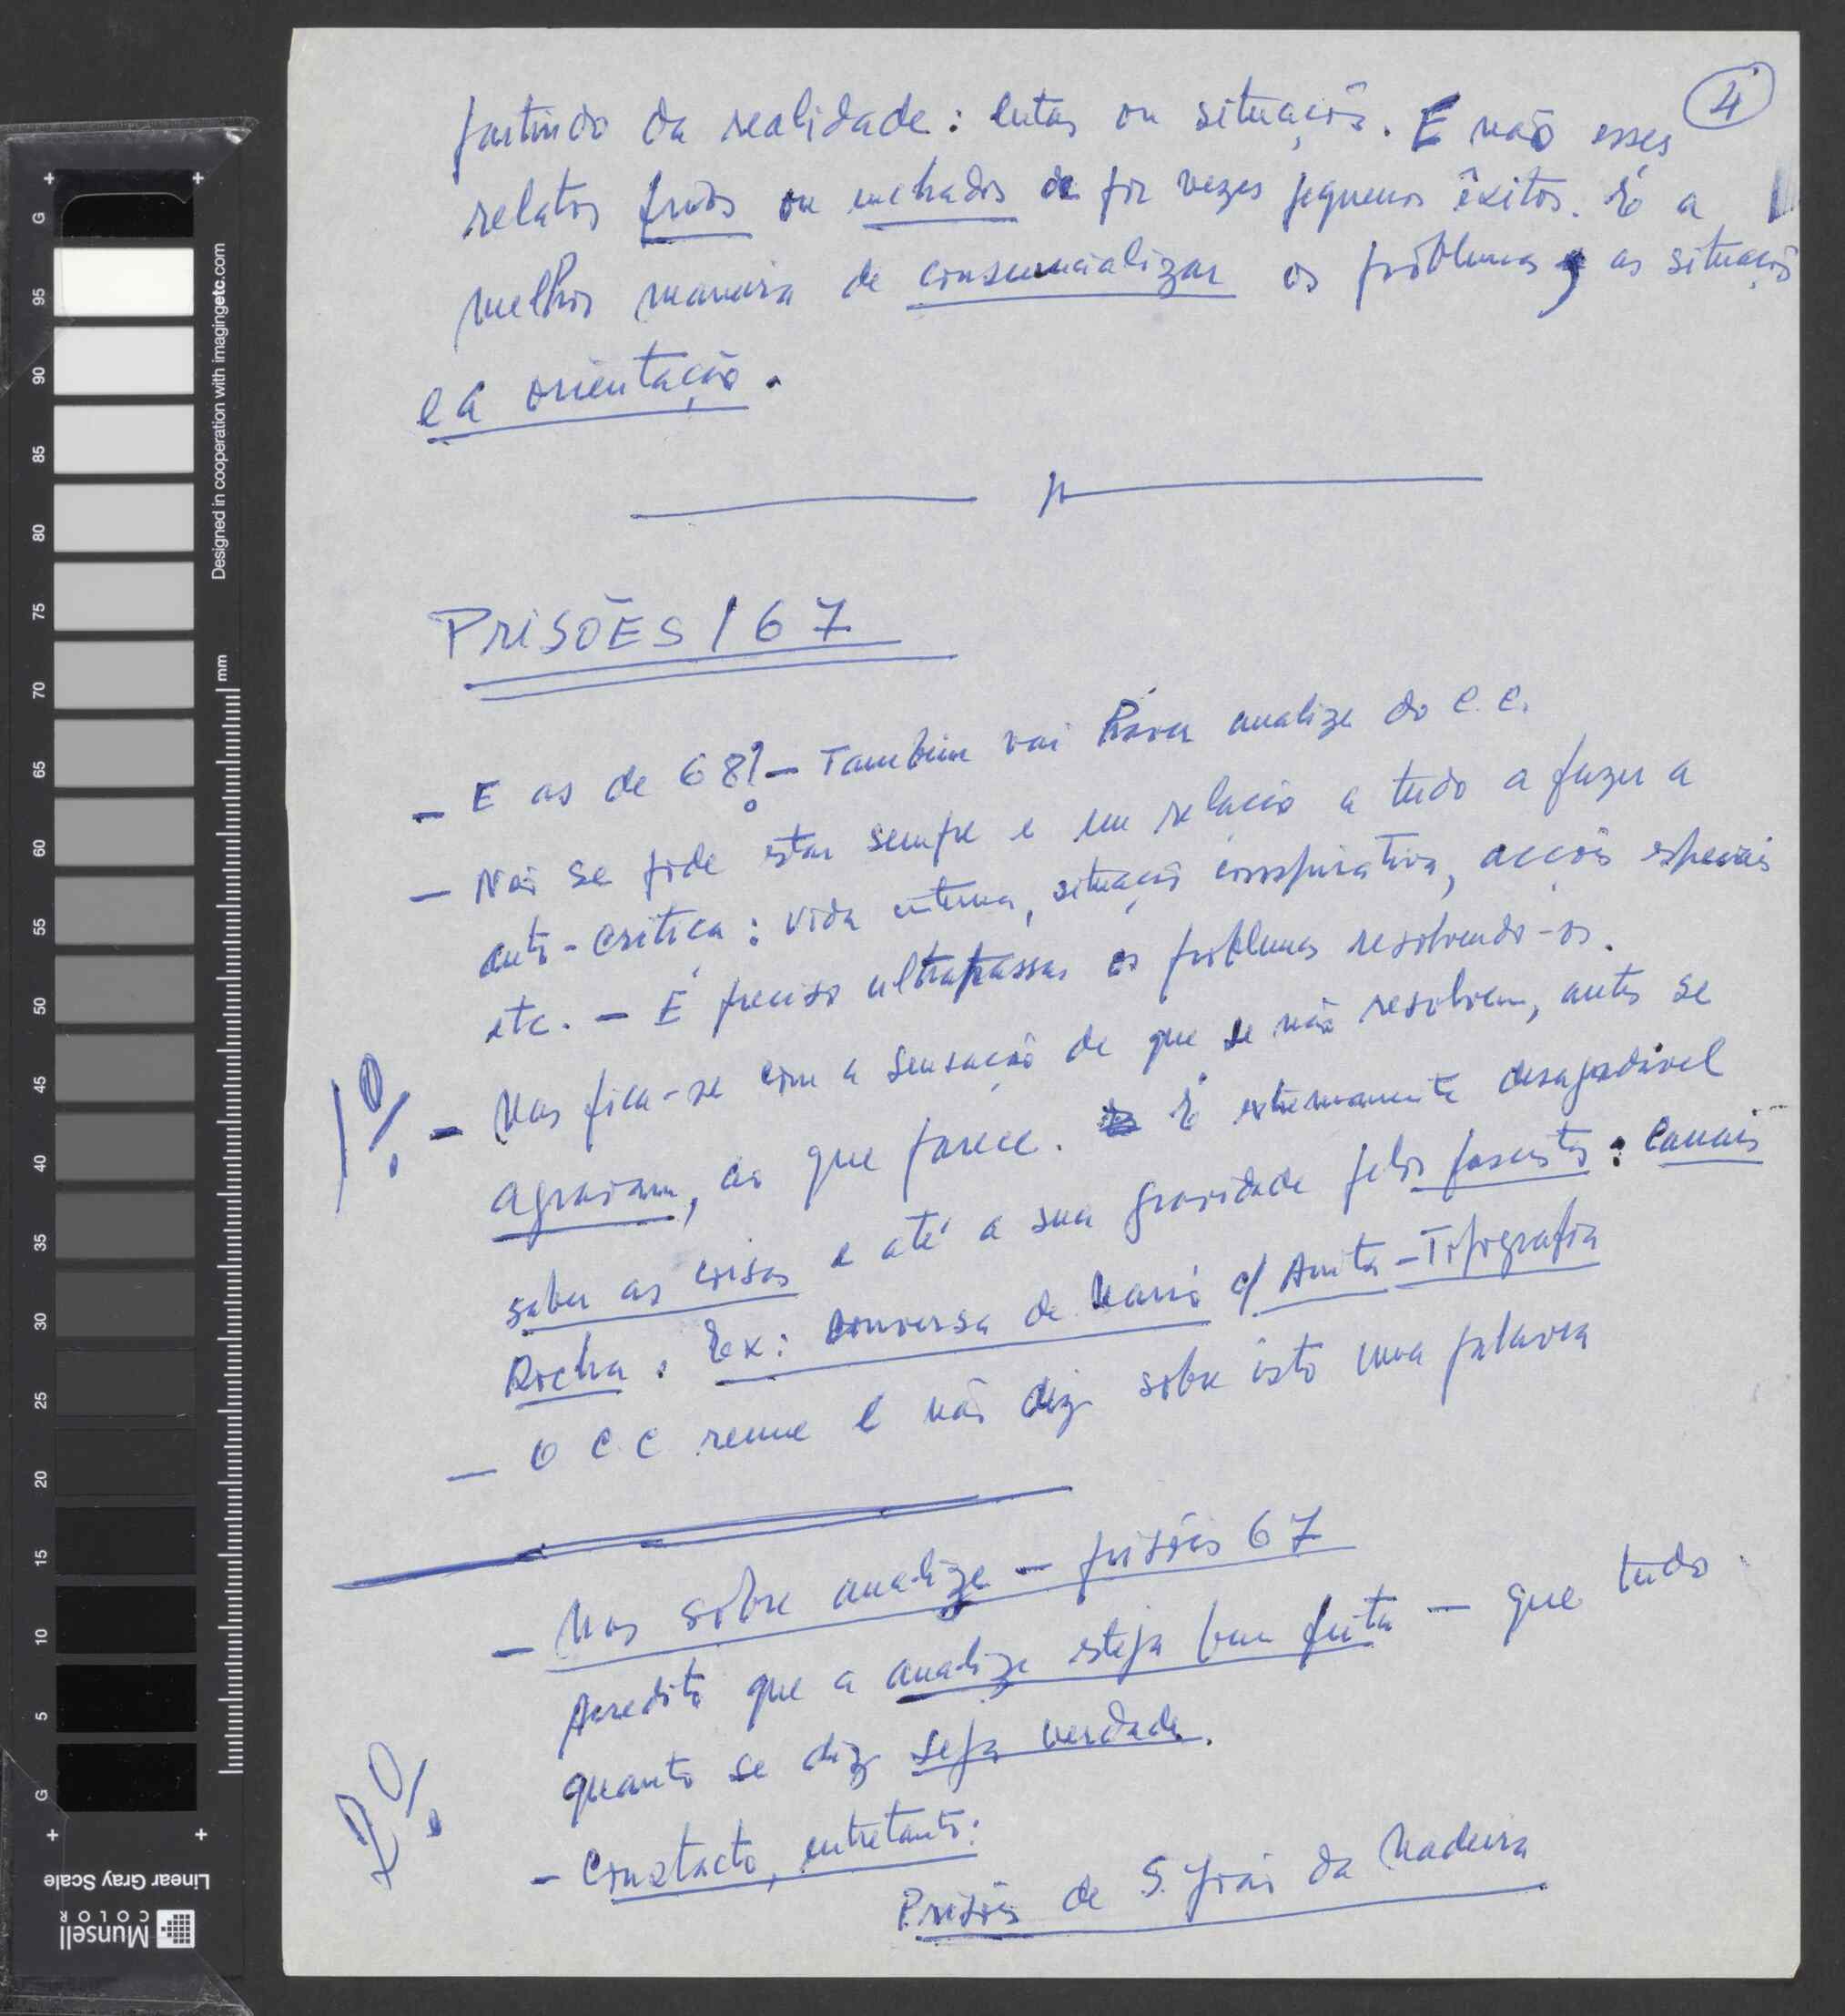 4
partindo da realidade: lutas ou situações. E não esses
relatos frios ou inchados de por vezes pequenos êxitos. É a
melhor maneira de consciencializar os problemas, as situações
e a orientação.
PRISÕES / 67
— E as de 68? — Também vai haver analize do C.C.
— Não se pode estar sempre e em relação a tudo a fazer a
auto-crítica: vida interna, situação conspirativa, acções especiais
etc. — É preciso ultrapassar os problemas resolvendo-os.
1º. — Mas fica-se com a sensação de que se não resolvem, antes se
agravam, ao que parece. É extremamente desagradável
saber as coisas e até a sua gravidade pelos fascistas: Canais
Rocha. Ex: conversa de Mário c/ Anita - Tipografia
— O C C reune e não diz sobre isto uma palavra
— Mas sobre analize — prisões 67
Acredito que a analize esteja bem feita — que tudo
quanto se diz seja verdade.
2º.
- Constacto, entretanto:
Prisões de S. João da Madeira
G
95
90
85
80
75
70
65
60
55
50
45
40
35
30
25
20
15
10
5
G
Designed in cooperation with imagingetc.com
mm
Linear Gray Scale
Munsell
COLOR